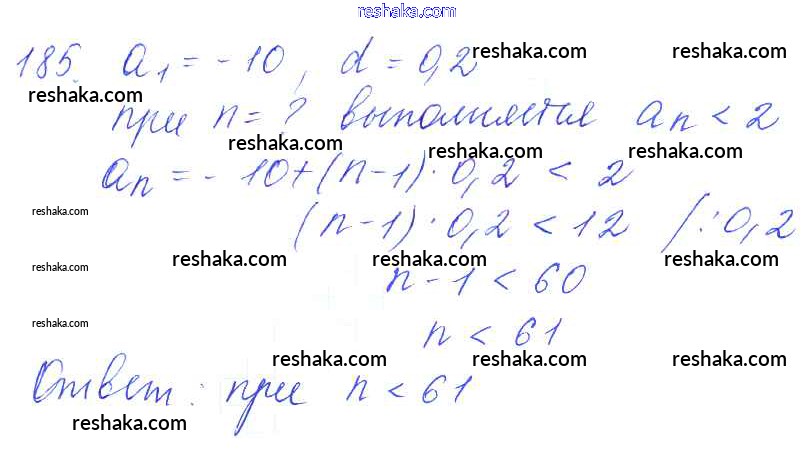 reshaka.com
185. a₁ = -10, d = 0,2
reshaka.com reshaka.com reshaka.com
при n = ? выполняется aₙ < 2
reshaka.com reshaka.com reshaka.com
aₙ = -10 + (n-1) · 0,2 < 2
reshaka.com
(n-1) · 0,2 < 12 / : 0,2
reshaka.com reshaka.com reshaka.com
reshaka.com
n-1 < 60
reshaka.com
n < 61
reshaka.com reshaka.com reshaka.com
Ответ: при n < 61
reshaka.com reshaka.com reshaka.com